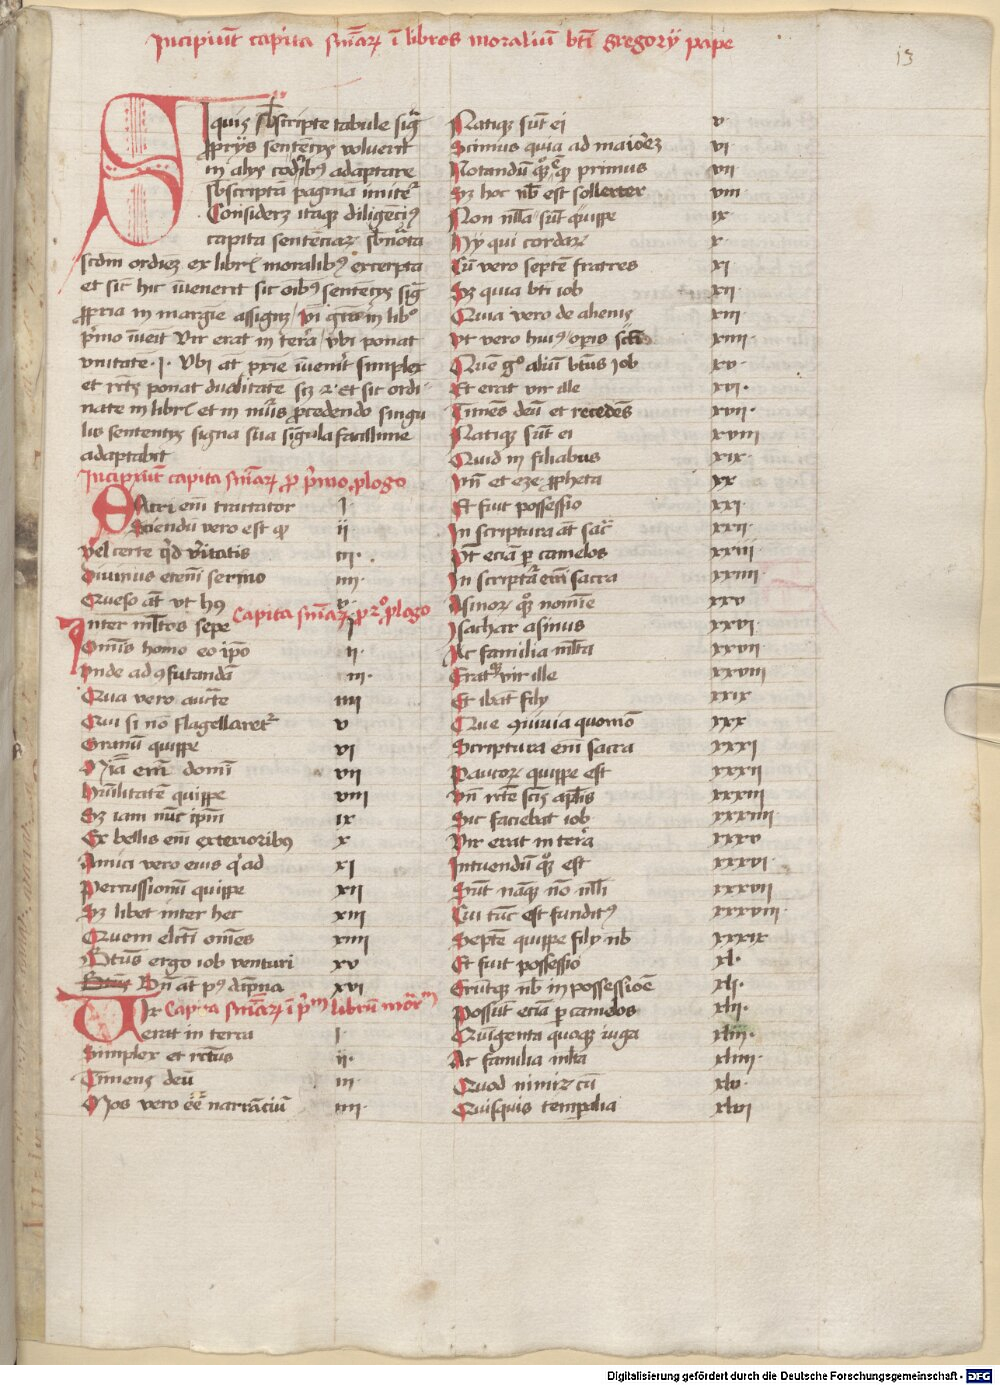 Incipiu͞t capita sn͞iar͞ ī libros moraliu͞ bt͞i gregorÿ pape
13
Siquis sb͞scripte tabule sig͞
ꝓprijs sentencijs voluerit
in alijs codicibꝫ adaptare
sb͞scripta pagina͞ imitet͛
Considerꝫ itaqꝫ diligeciꝰ
capita sentenciarꝝ sb͞nota
scdm ordiēꝫ ex libr͛ moralibꝫ excerpta
et sic hic iu͞enerit sic oi͞bꝫ sentencijs sig͞
ꝓpria in margīe assignꝫ / Vt͛ gra͞ in libº
pͥmo iu͞eit Vir erat in terͣa / vbi ponat
vnitatē · I · Vbi at͞ pxīe iu͞enit͛ simplex
et rct͞ꝰ ponat dualitatē scꝫ 2 · et sic ordi
nate in libr͛ et in nuīs procedendo singu
lis sentencijs signa sua singula facillime
adaptabit
Incipiu͞t capita sn͞iarꝝ ꝓ pͥmo plogo
Patri em͞ tractator I
Sciendu͞ vero est ꝙ ii
Vel certe qd͛ v͛itatis iii ·
Diuinus eteni͞ sermo iiii ·
Queso at͞ vt hꝰ v ·
Capita sn͞iarꝝ ꝓ 2º plogo
Inter ml͞tos sepe I
Omnis homo eo ip͞o ii
Vnde ad ꝯfutanda͞ iii ·
Qua vero aucte iiii
Qui si no͞ flagellaret͛ v
Granu͞ quippe vi
Nia͞ em͞ domi͞ vii
Humilitatē quippe viii
Sꝫ iam nu͞c ip͞m ix
Ex bellis em͞ exterioribꝫ x
Amici vero eius q͛ ad xi
Percussionu͞ quippe xii
Sꝫ libet inter hec xiii
Quem electi om͞es xiiii
Bt͞us ergo iob venturi xv
Bn͞ at͞ pꝰ da͞pna xvi
Capita sn͞iarꝝ ī pͥm libru͞ mor͛
Vir
erat in terra I ·
Simplex et rct͞us ii ·
Timens deu͞ iii ·
Mos vero ee͞ narranciu͞ iiii ·
Natiqꝫ su͞t ei v
Scimus quia ad maio͛eꝫ vi
Notandu͞ qꝫ ꝙ primus vii
Sꝫ hoc nb͞ est sollerter viii
Non nll͞a su͞t quippe ix
Hÿ qui cordarꝝ x
Cu͞ vero septē fratres xi
Sꝫ quia bt͞i iob xii ·
Quia vero de alienis xiii
Vt vero huiꝰ opis xiiii ·
Que͞ gº aliu͞ bt͞us iob xv ·
Et erat vir ille xvi ·
Timēs deu͞ et recedēs xvii ·
Natiqꝫ su͞t ei xviii
Quid in filiabus xix ·
Vn͞ et eze ꝓpheta xx
Et fuit possessio xxi ·
In scriptura at͞ sac͛ xxii ·
Vt͞ ecia͞ p camelos xxiii ·
In scriptͣa em͞ sacra xxiiii ·
Asinorꝝ qꝫ nomīe xxv
Isachar asinus xxvi ·
Ac familia ml͞ta xxvii
Eratqꝫ vir ille xxviii
Et ibāt filÿ xxix
Que ꝯuiuia quomo͞ xxx
Scriptura em͞ sacra xxxi
Paucorꝝ quippe est xxxii
Vn͞ rct͞e scīs apl͞is xxxiii
Sic faciebat iob xxxiiii
Vir erat in terͣa xxxv
Intuendu͞ qꝫ est xxxvi ·
Su͞t na͞qꝫ no͞ nll͞i xxxvii
Cui tu͞c est funditꝰ xxxviii ·
Septē quippe filÿ nb͞ xxxix
Et fuit possessio xl ·
Eru͞tqꝫ nb͞ in possessionē xli ·
Possu͞t ecia͞ p camelos xlii ·
Quīgenta quoqꝫ iuga xliii ·
Ac familia ml͞ta xliiii ·
Quod nimirꝝ cu͞ xlv ·
Quisquis temp̲alia xlvi
Digitalisierung gefördert durch die Deutsche Forschungsgemeinschaft - DFG